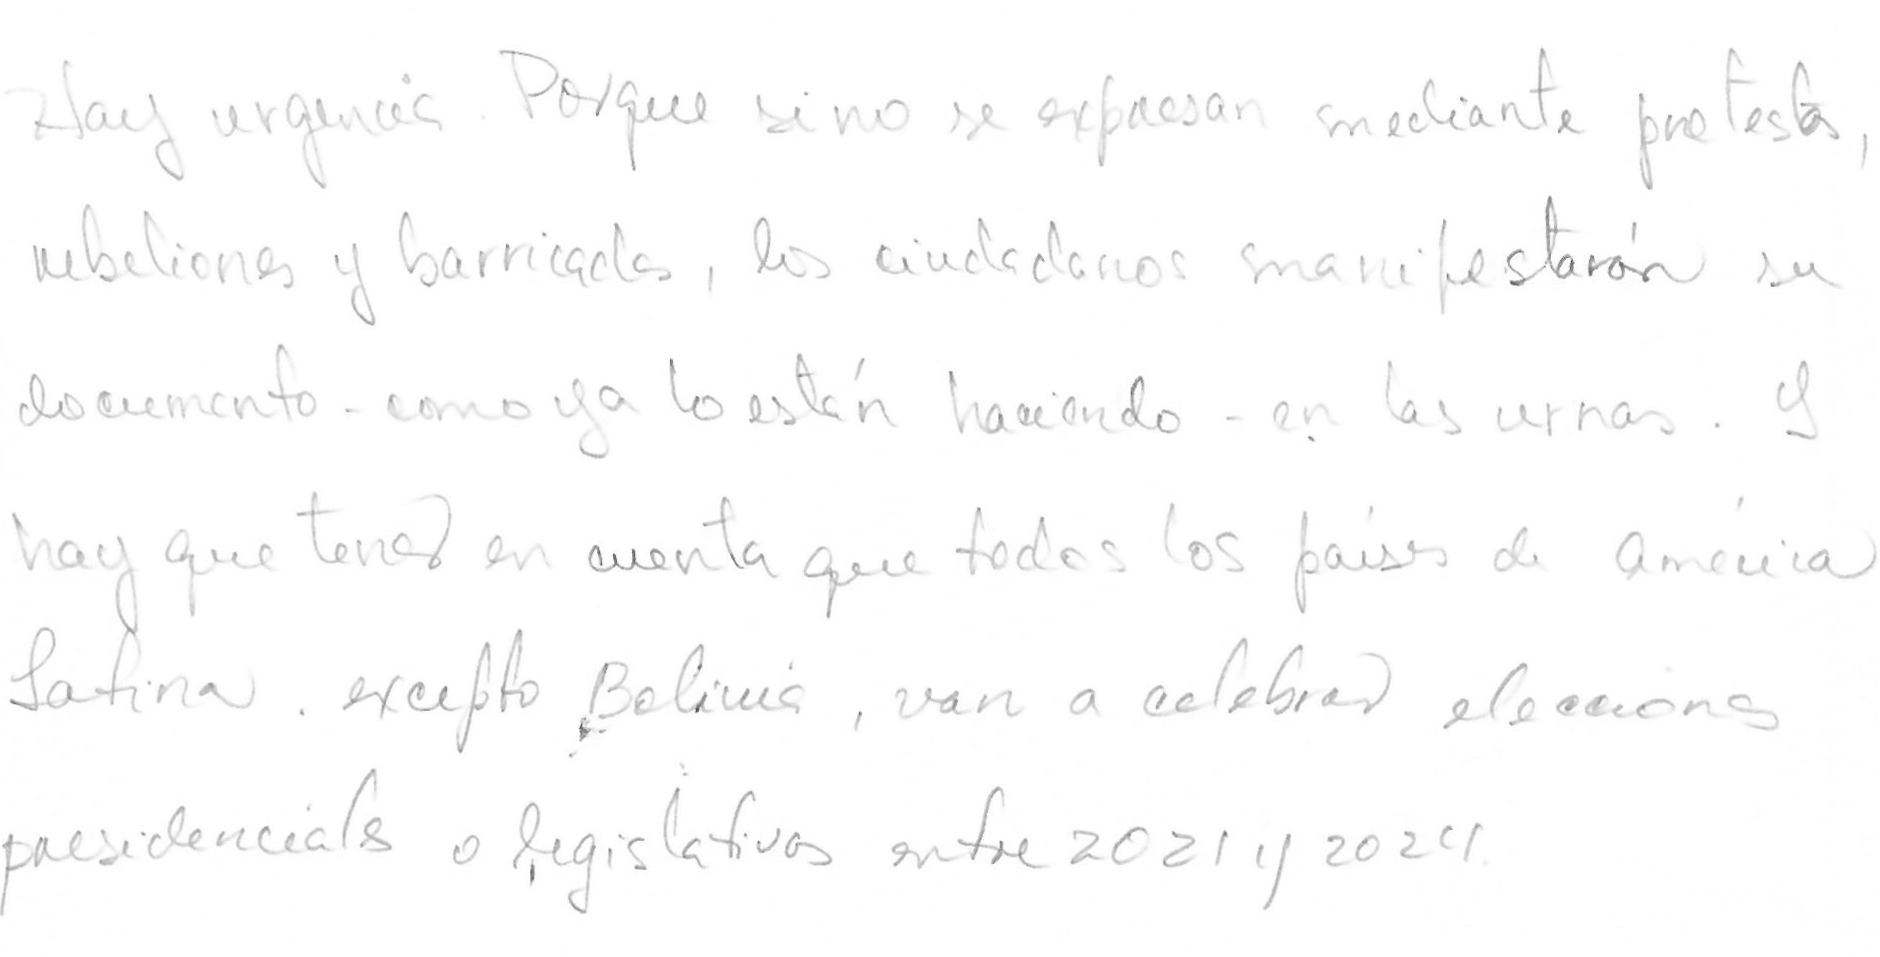 Hay urgencia. Porque si no se expresan mediante protestas,
rebeliones y barricadas, los ciudadanos manifestarán su
documento - como ya lo están haciendo - en las urnas. Y
hay que tener en cuenta que todos los países de América
Latina. excepto Bolivia, van a celebrar elecciones
presidenciales o legislativas entre 2021 y 2024.